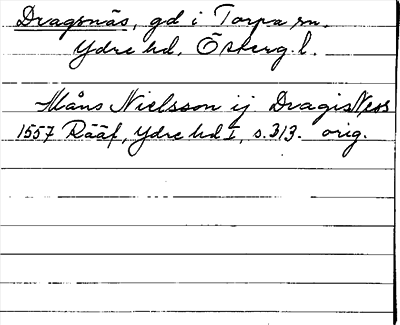 Dragsnäs, gd i Torpa sn.
Ydre hd, Österg. l.
Måns Nielsson ij DragisNess
1557 Rääf, Ydre hd I, s. 313. orig.